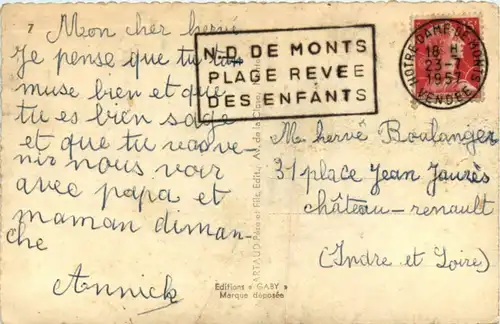 7
Mon cher hervé
Je pense que tu t'a
muse bien et que
tu es bien sage
et que tu vas ve-
nir nous voir
avec papa et
maman diman-
che
Annick
N-D. DE MONTS
PLAGE REVEE
DES ENFANTS
NOTRE-DAME-DE-MONTS
18 H
23-7
1957
VENDÉE
M. hervé Boulanger
31 place Jean Jaurès
château-renault
(Indre et Loire)
ARTAUD Père et Fils, Édit.
Editions « GABY »
Marque déposée